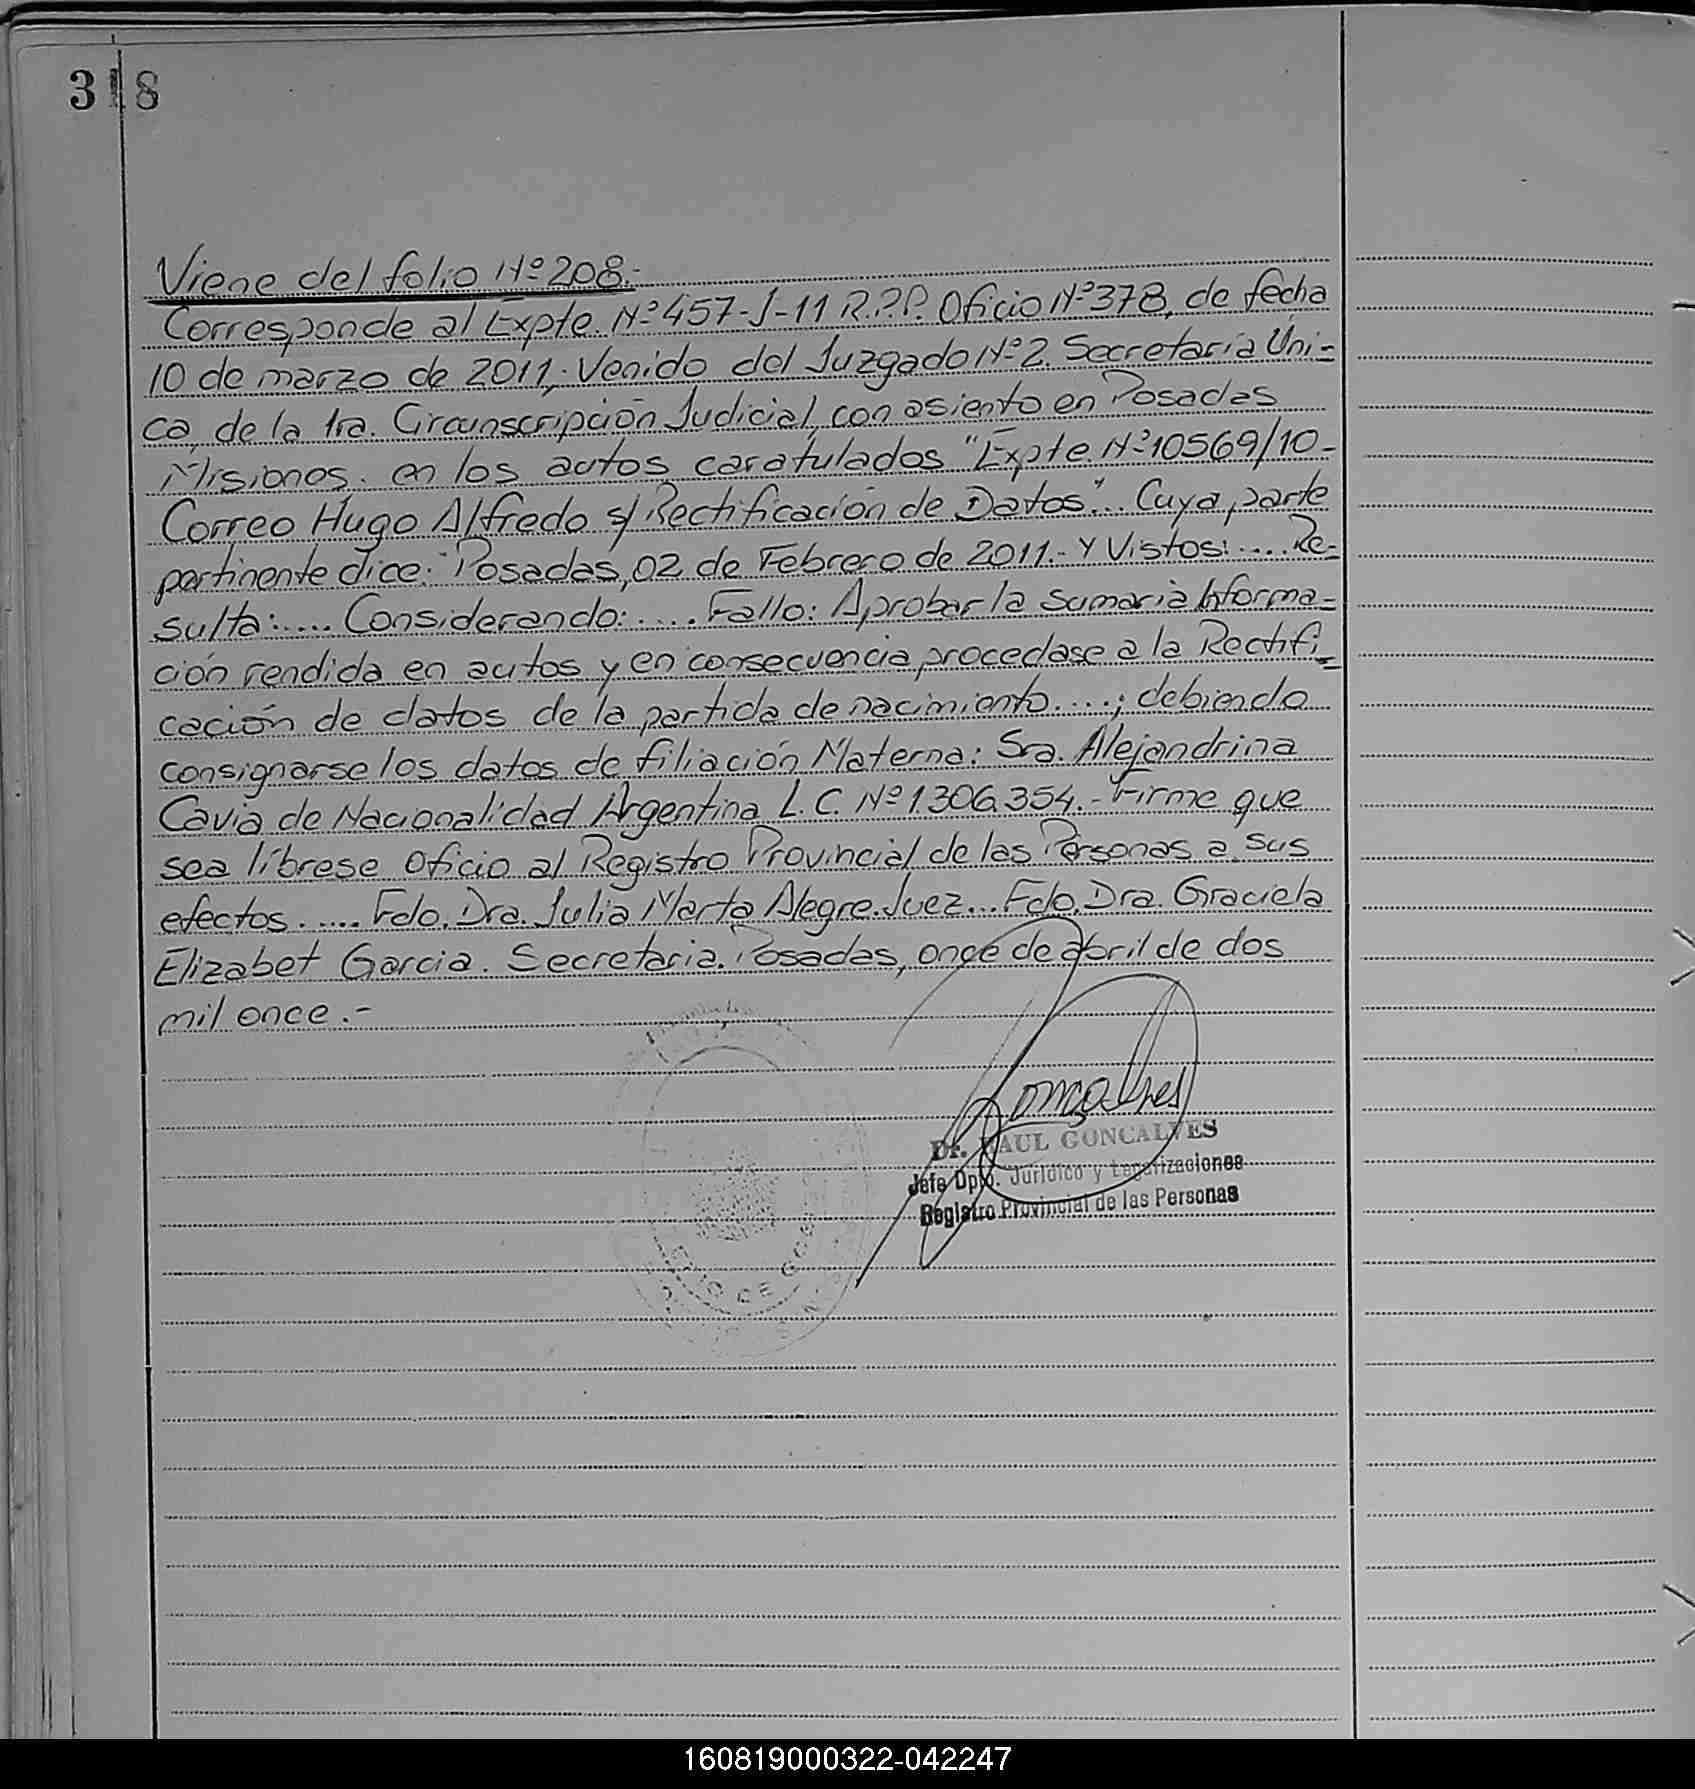 318
Viene del folio Nº 208.-
Corresponde al Expte. Nº 457-J-11 R.P.P. Oficio Nº 378, de fecha
10 de marzo de 2011, Venido del Juzgado Nº 2. Secretaría Uni=
ca, de la 1ra. Circunscripción Judicial, con asiento en Posadas
Misiones. en los autos caratulados "Expte. Nº 10569/10-
Correo Hugo Alfredo s/ Rectificación de Datos"... Cuya parte
pertinente dice: Posadas, 02 de Febrero de 2011.- Y Vistos:.... Re=
sulta:.... Considerando:.... Fallo: Aprobar la sumaria Informa=
ción rendida en autos y en consecuencia procedase a la Rectifi=
cación de datos de la partida de nacimiento....; debiendo
consignarse los datos de filiación Materna: Sra. Alejandrina
Cavia de Nacionalidad Argentina L.C. Nº 1.306.354.- Firme que
sea líbrese Oficio al Registro Provincial de las Personas a sus
efectos..... Fdo. Dra. Julia Marta Alegre. Juez... Fdo. Dra. Graciela
Elizabet Garcia. Secretaria. Posadas, once de abril de dos
mil once.-
Goncalves
Dr. RAUL GONCALVES
Jefe Dpto. Jurídico y Legalizaciones
Registro Provincial de las Personas
160819000322-042247